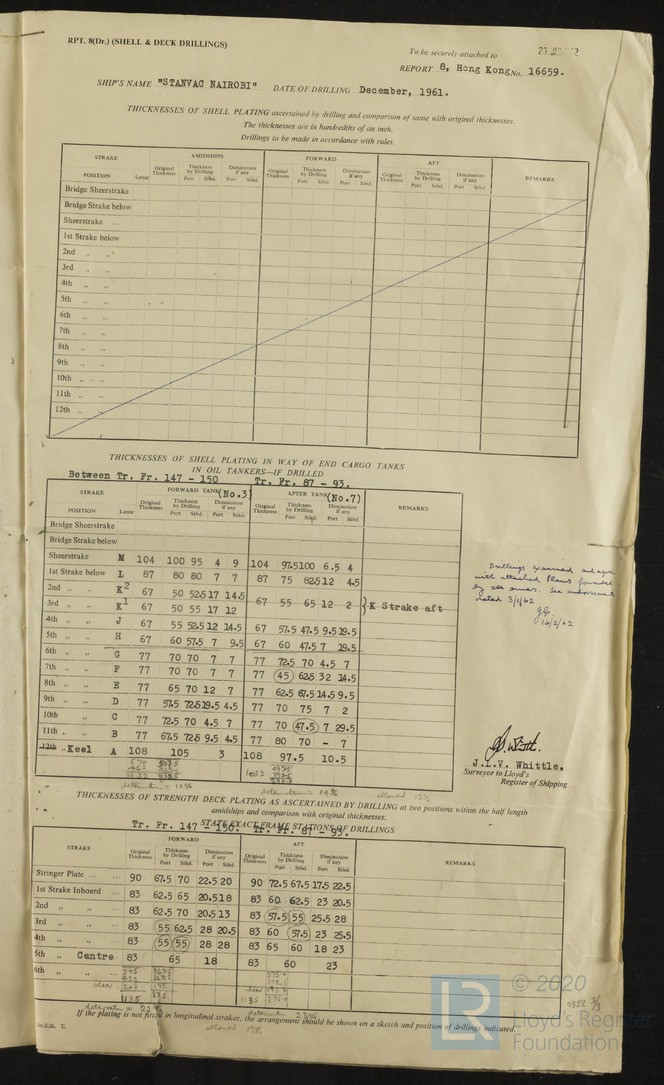 RPT. 8(Dr.) (SHELL & DECK DRILLINGS)
To be securely attached to
REPORT 8, Hong Kong No. 16659.
SHIP'S NAME "STANVAC NAIROBI" DATE OF DRILLING December, 1961.
THICKNESSES OF SHELL PLATING ascertained by drilling and comparison of same with original thicknesses.
The thicknesses are in hundredths of an inch.
Drillings to be made in accordance with rules.
STRAKE AMIDSHIPS FORWARD AFT REMARKS
POSITION Letter Original Thickness Thickness by Drilling Port Stbd. Diminution if any Port Stbd. Original Thickness Thickness by Drilling Port Stbd. Diminution if any Port Stbd. Original Thickness Thickness by Drilling Port Stbd. Diminution if any Port Stbd.
Bridge Sheerstrake
Bridge Strake below
Sheerstrake ...
1st Strake below
2nd ,, ,,
3rd ,, ,,
4th ,, ,,
5th ,, ,,
6th ,, ,,
7th ,, ,,
8th ,, ,,
9th ,, ,,
10th ,, ,,
11th ,, ,,
12th ,, ,,
THICKNESSES OF SHELL PLATING IN WAY OF END CARGO TANKS
IN OIL TANKERS—IF DRILLED
Between Tr. Fr. 147 - 150 Tr. Fr. 87 - 93.
STRAKE FORWARD TANK (No.3) AFTER TANK (No.7) REMARKS
POSITION Letter Original Thickness Thickness by Drilling Port Stbd. Diminution if any Port Stbd. Original Thickness Thickness by Drilling Port Stbd. Diminution if any Port Stbd.
Bridge Sheerstrake
Bridge Strake below
Sheerstrake M 104 100 95 4 9 104 97.5 100 6.5 4
1st Strake below L 87 80 80 7 7 87 75 82.5 12 4.5
2nd ,, ,, K2 67 50 52.5 17 14.5
3rd ,, ,, K1 67 50 55 17 12 67 55 65 12 2 } K Strake aft
4th ,, ,, J 67 55 52.5 12 14.5 67 57.5 47.5 9.5 19.5
5th ,, ,, H 67 60 57.5 7 9.5 67 60 47.5 7 19.5
6th ,, ,, G 77 70 70 7 7 77 72.5 70 4.5 7
7th ,, ,, F 77 70 70 7 7 77 45 62.5 32 14.5
8th ,, ,, E 77 65 70 12 7 77 62.5 67.5 14.5 9.5
9th ,, ,, D 77 57.5 72.5 19.5 4.5 77 70 75 7 2
10th ,, ,, C 77 72.5 70 4.5 7 77 70 47.5 7 29.5
11th ,, ,, B 77 67.5 72.5 9.5 4.5 77 80 70 - 7
12th ,, Keel A 108 105 3 108 97.5 10.5
Drillings examined and agree
with attached Plans forwarded
by the owners. See endorsement
dated 3/1/62
16/2/62
J.L.V. Whittle.
Surveyor to Lloyd's
Register of Shipping
THICKNESSES OF STRENGTH DECK PLATING AS ASCERTAINED BY DRILLING at two positions within the half length
amidships and comparison with original thicknesses.
STATE EXACT FRAME STATIONS OF DRILLINGS
Tr. Fr. 147 - 150. Tr. Fr. 87 - 93.
STRAKE FORWARD AFT REMARKS
Original Thickness Thickness by Drilling Port Stbd. Diminution if any Port Stbd. Original Thickness Thickness by Drilling Port Stbd. Diminution if any Port Stbd.
Stringer Plate ... ... 90 67.5 70 22.5 20 90 72.5 67.5 17.5 22.5
1st Strake Inboard ... 83 62.5 65 20.5 18 83 60 62.5 23 20.5
2nd ,, ,, ... 83 62.5 70 20.5 13 83 57.5 55 25.5 28
3rd ,, ,, ... 83 55 62.5 28 20.5 83 60 57.5 23 25.5
4th ,, ,, ... 83 55 55 28 28 83 65 60 18 23
5th ,, Centre 83 65 18 83 60 23
6th ,, ,, ...
If the plating is not fitted in longitudinal strakes, the arrangement should be shown on a sketch and position of drillings indicated.
© 2020
LR
Lloyd's Register
Foundation